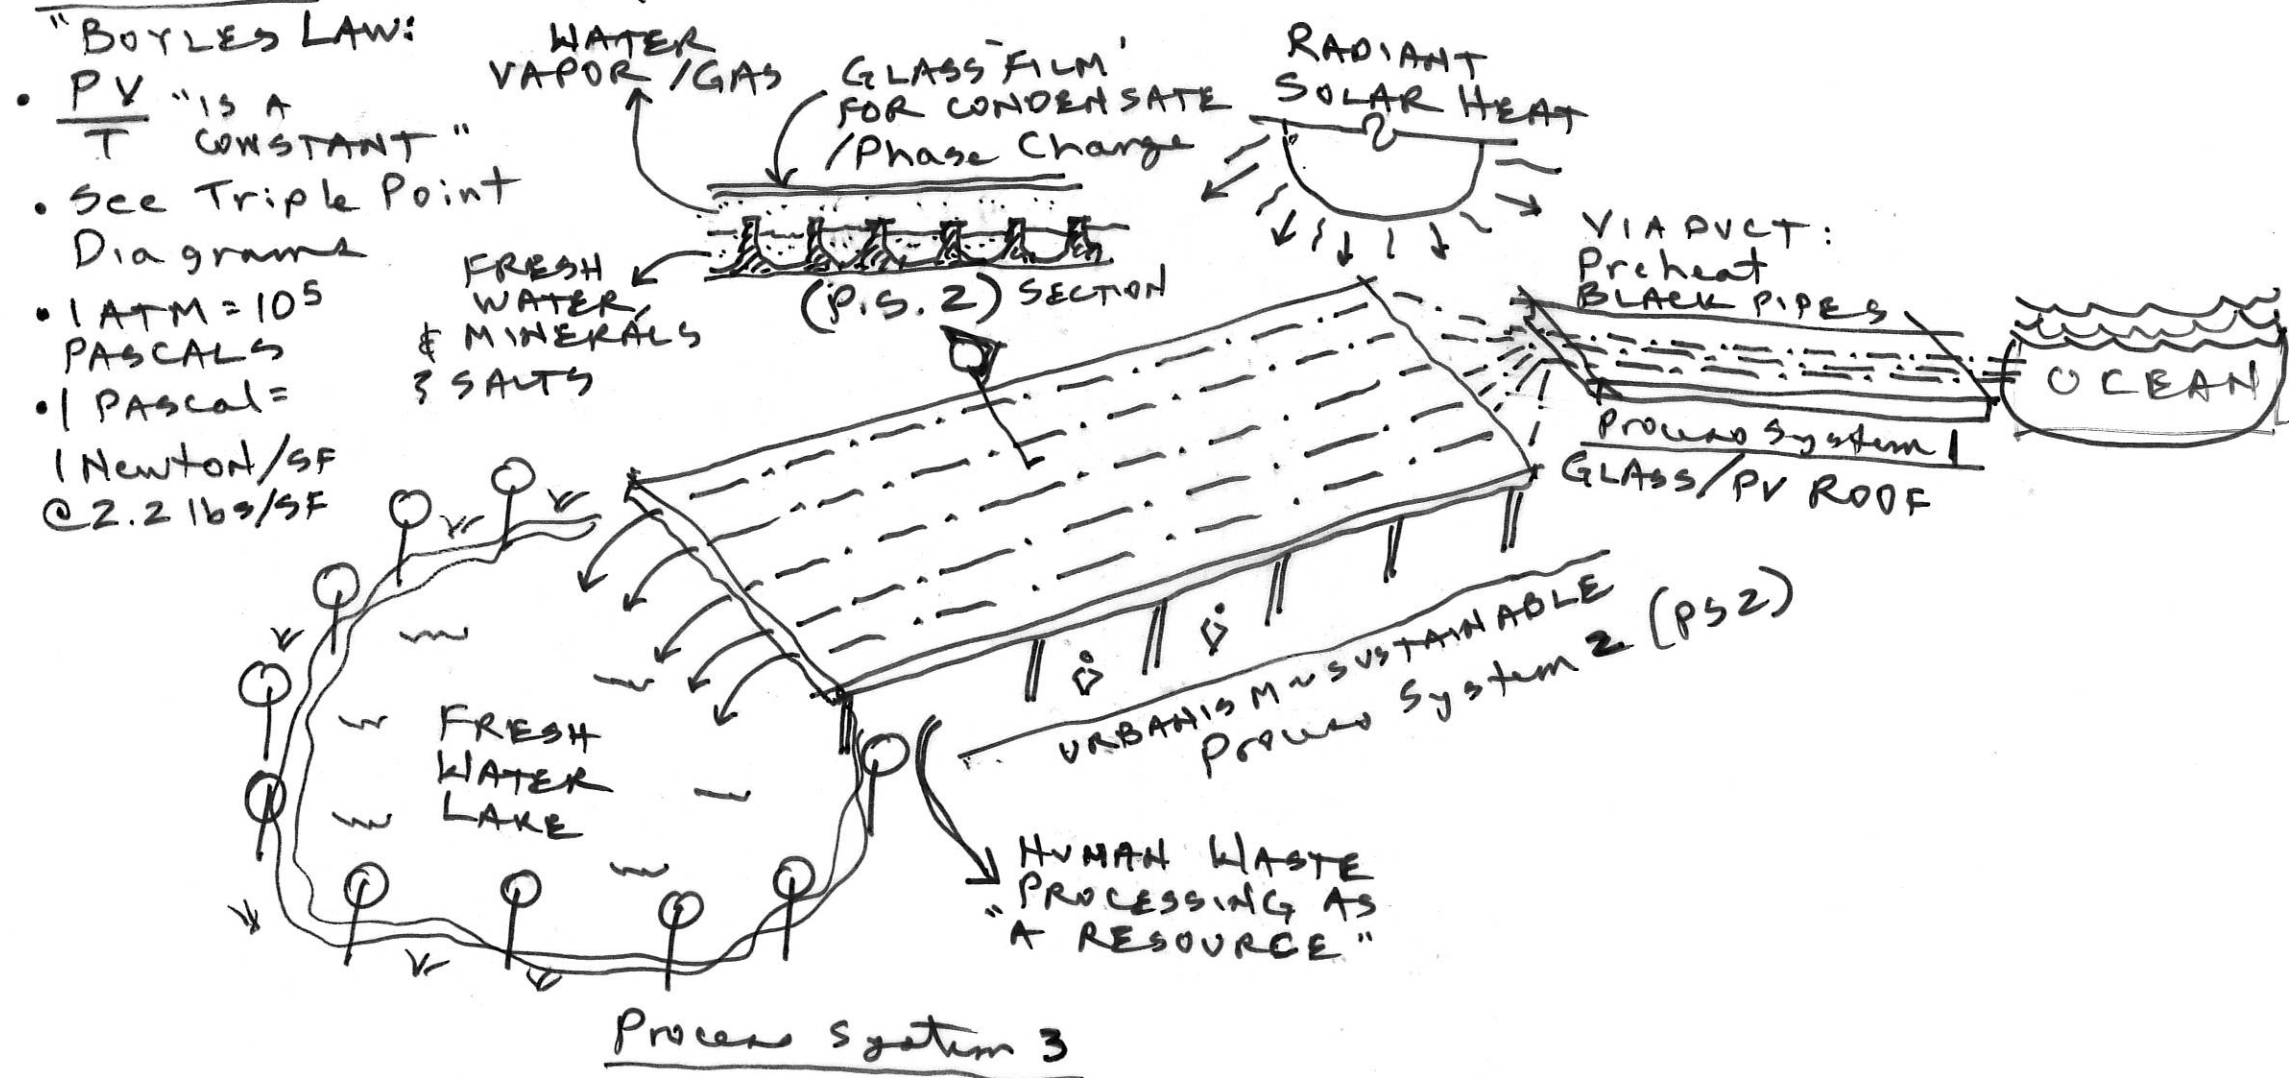 "BOYLES LAW:
• PV
T
"IS A
CONSTANT"
• See Triple Point
Diagrams
• 1 ATM = 10⁵
PASCALS
• 1 PAscal =
1 Newton/SF
@2.2 lbs/SF
WATER
VAPOR/GAS
GLASS "FILM'
FOR CONDENSATE
/Phase Change
FRESH
WATER,
& MINERALS
& SALTS
(P.S.2) SECTION
RADIANT
SOLAR HEAT
VIADUCT:
Preheat
BLACK PIPES
OCEAN
Process System 1
GLASS/PV ROOF
URBANISM ~ SUSTAINABLE
Process System 2 (PS2)
FRESH
WATER
LAKE
HUMAN WASTE
PROCESSING AS
"A RESOURCE"
Process System 3